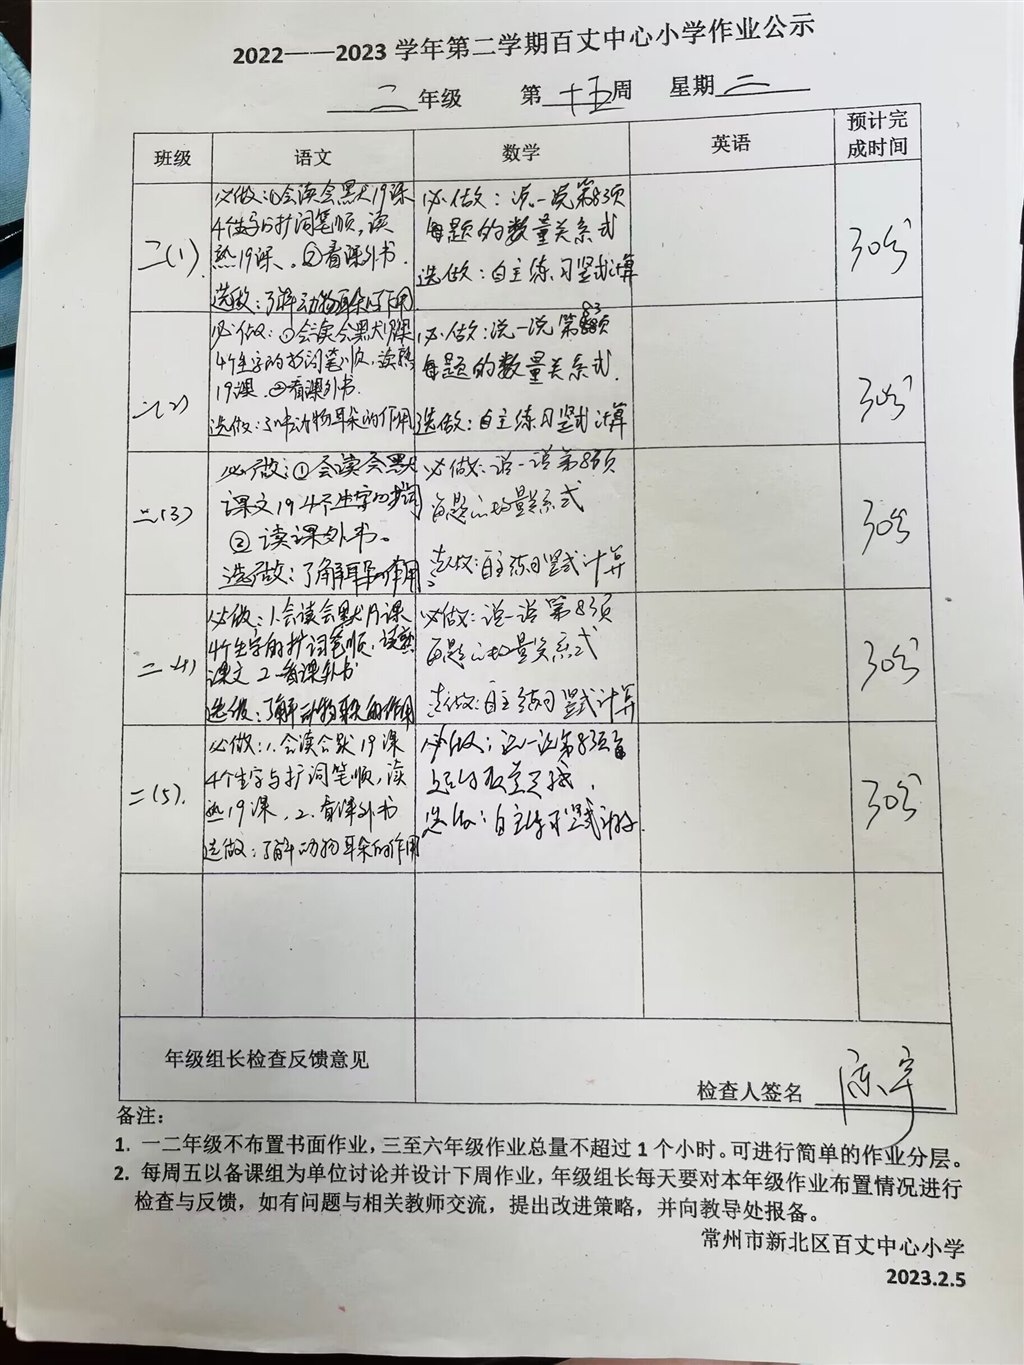 2022——2023 学年第二学期百丈中心小学作业公示
二 年级 第 十五 周 星期 二
班级 语文 数学 英语 预计完成时间
二(1)
必做:①会读会默19课
4个生字的扩词笔顺,读
熟19课、②看课外书.
选做:了解动物耳朵的作用
必做:说一说第83页
每题的数量关系式
选做:自主练习竖式计算
30分
二(2)
必做:①会读会默19课
4个生字的扩词笔顺,读熟
19课.②看课外书.
选做:了解动物耳朵的作用
必做:说一说第83页
每题的数量关系式.
选做:自主练习竖式计算
30分
二(3)
必做:①会读会默
课文19 4个生字的扩词
②读课外书。
选做:了解耳朵的作用
必做:说一说第83页
每题的数量关系式
选做:自主练习竖式计算
30分
二(4)
必做:1.会读会默19课
4个生字的扩词笔顺,读熟
课文 2.看课外书
选做:了解动物耳朵的作用
必做:说一说第83页
每题的数量关系式
选做:自主练习竖式计算
30分
二(5).
必做:1.会读会默19课
4个生字与扩词笔顺,读
熟19课,2.看课外书
选做:了解动物耳朵的作用
必做:说一说第83页每
选做:自主练习竖式计算.
30分
年级组长检查反馈意见
检查人签名 陈宇
备注:
1. 一二年级不布置书面作业,三至六年级作业总量不超过 1 个小时。可进行简单的作业分层。
2. 每周五以备课组为单位讨论并设计下周作业,年级组长每天要对本年级作业布置情况进行
检查与反馈,如有问题与相关教师交流,提出改进策略,并向教导处报备。
常州市新北区百丈中心小学
2023.2.5